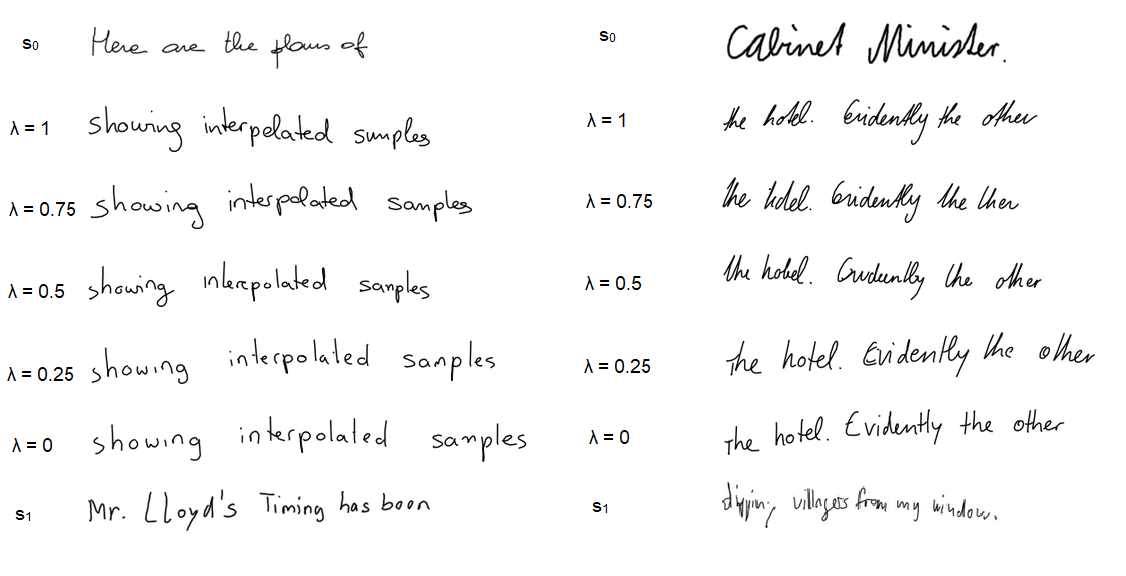 S0 Here are the plans of
λ = 1 showing interpelated sumples
λ = 0.75 showing interpolated samples
λ = 0.5 showing interpolated samples
λ = 0.25 showing interpolated samples
λ = 0 showing interpolated samples
S1 Mr. Lloyd's Timing has boon
S0 Cabinet Minister.
λ = 1 the hotel. Evidently the other
λ = 0.75 the hotel. Evidently the ther
λ = 0.5 the hotel. the other
λ = 0.25 The hotel. Evidently the other
λ = 0 The hotel. Evidently the other
S1 villagers from my window.